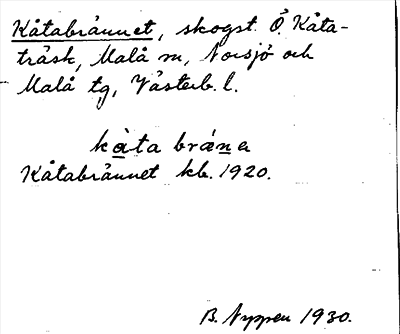 Kåtabrånnet, skogst. Ö. Kåta-
träsk, Malå sn, Norsjö och
Malå tg, Västerb. l.
kåta bråna
Kåtabrånnet kb. 1920.
B. Nyppen 1930.